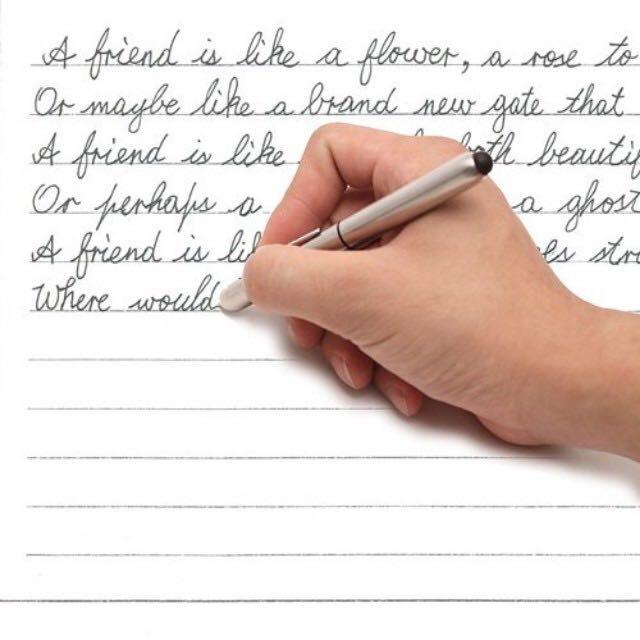 A friend is like a flower, a rose to
Or maybe like a brand new gate that
A friend is like both beautif
Or perhaps a a ghost
A friend is li es stra
Where would